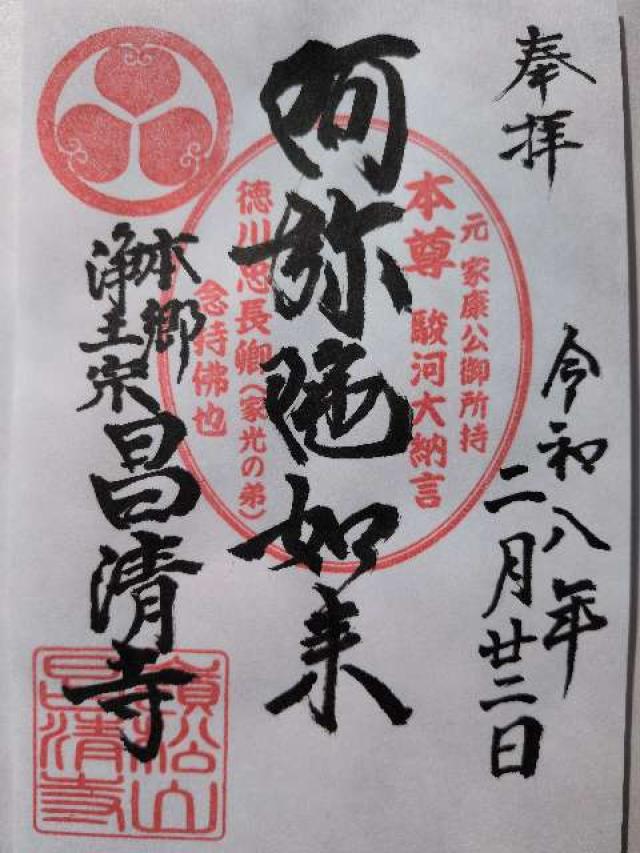 奉拝
令和八年
二月廿二日
元 家康公御所持
本尊 駿河大納言
徳川忠長卿(家光の弟)
念持佛也
阿弥陀如来
本郷
浄土宗 昌清寺
嶺松山
昌清寺